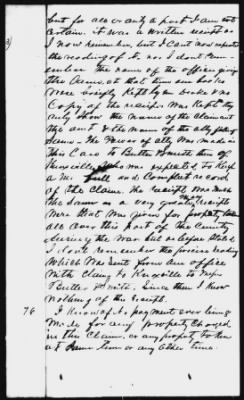 but for acc or only a part I am not
certain. it was a written receipt as
I now remember, but I cant now repeat
the reading of it. nor I dont rem-
ember the name of the officer giving
the same, at that time our books
were briefly kept by an books was
Copy of the receipt was kept they
only show the name of the claimant
the amt & the name of the atty
claim - The Power of atty was made in
this Case to Butler & Smith then of
Knoxville, who was expected to keep
a full and Complete record
of the Claim. The receipt was much
the same as a very great many receipts
were that was given for property taken
all over this part of the County
during the war but as before stated
I dont remember the precise reading
Which was sent from our office
with Claim to Knoxville to
Butler & Smith. Since then I know
nothing of the receipt.
76 I know of no payment ever being
made for any property Charged
in this Claim, or any property taken
at same time or any other time.